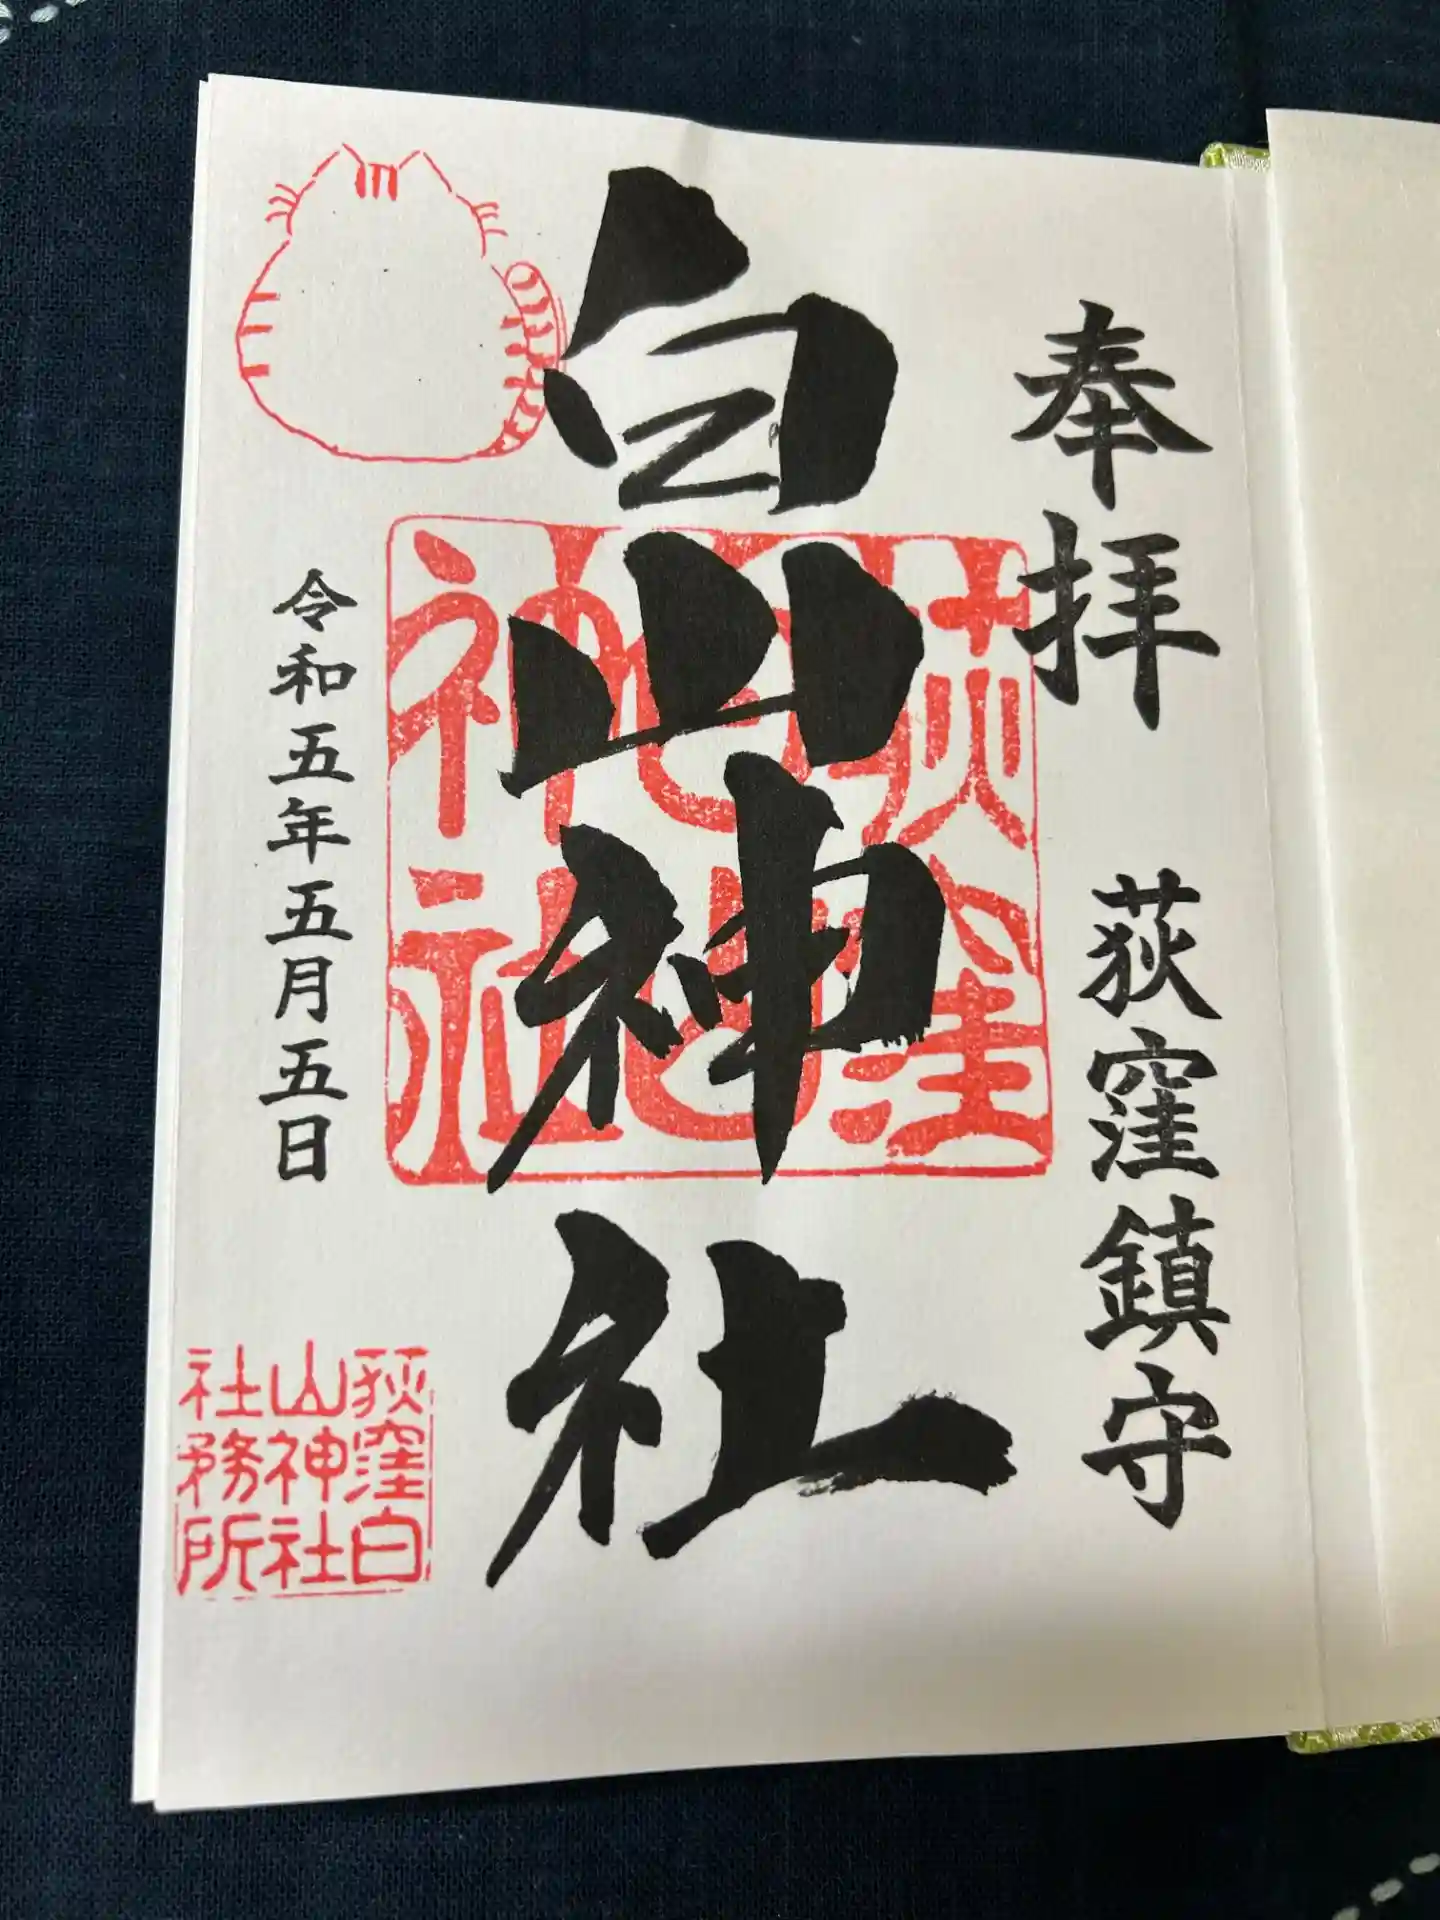 奉拝 荻窪鎮守
白山神社
荻窪
白山
神社
令和五年五月五日
荻窪白
山神社
社務所